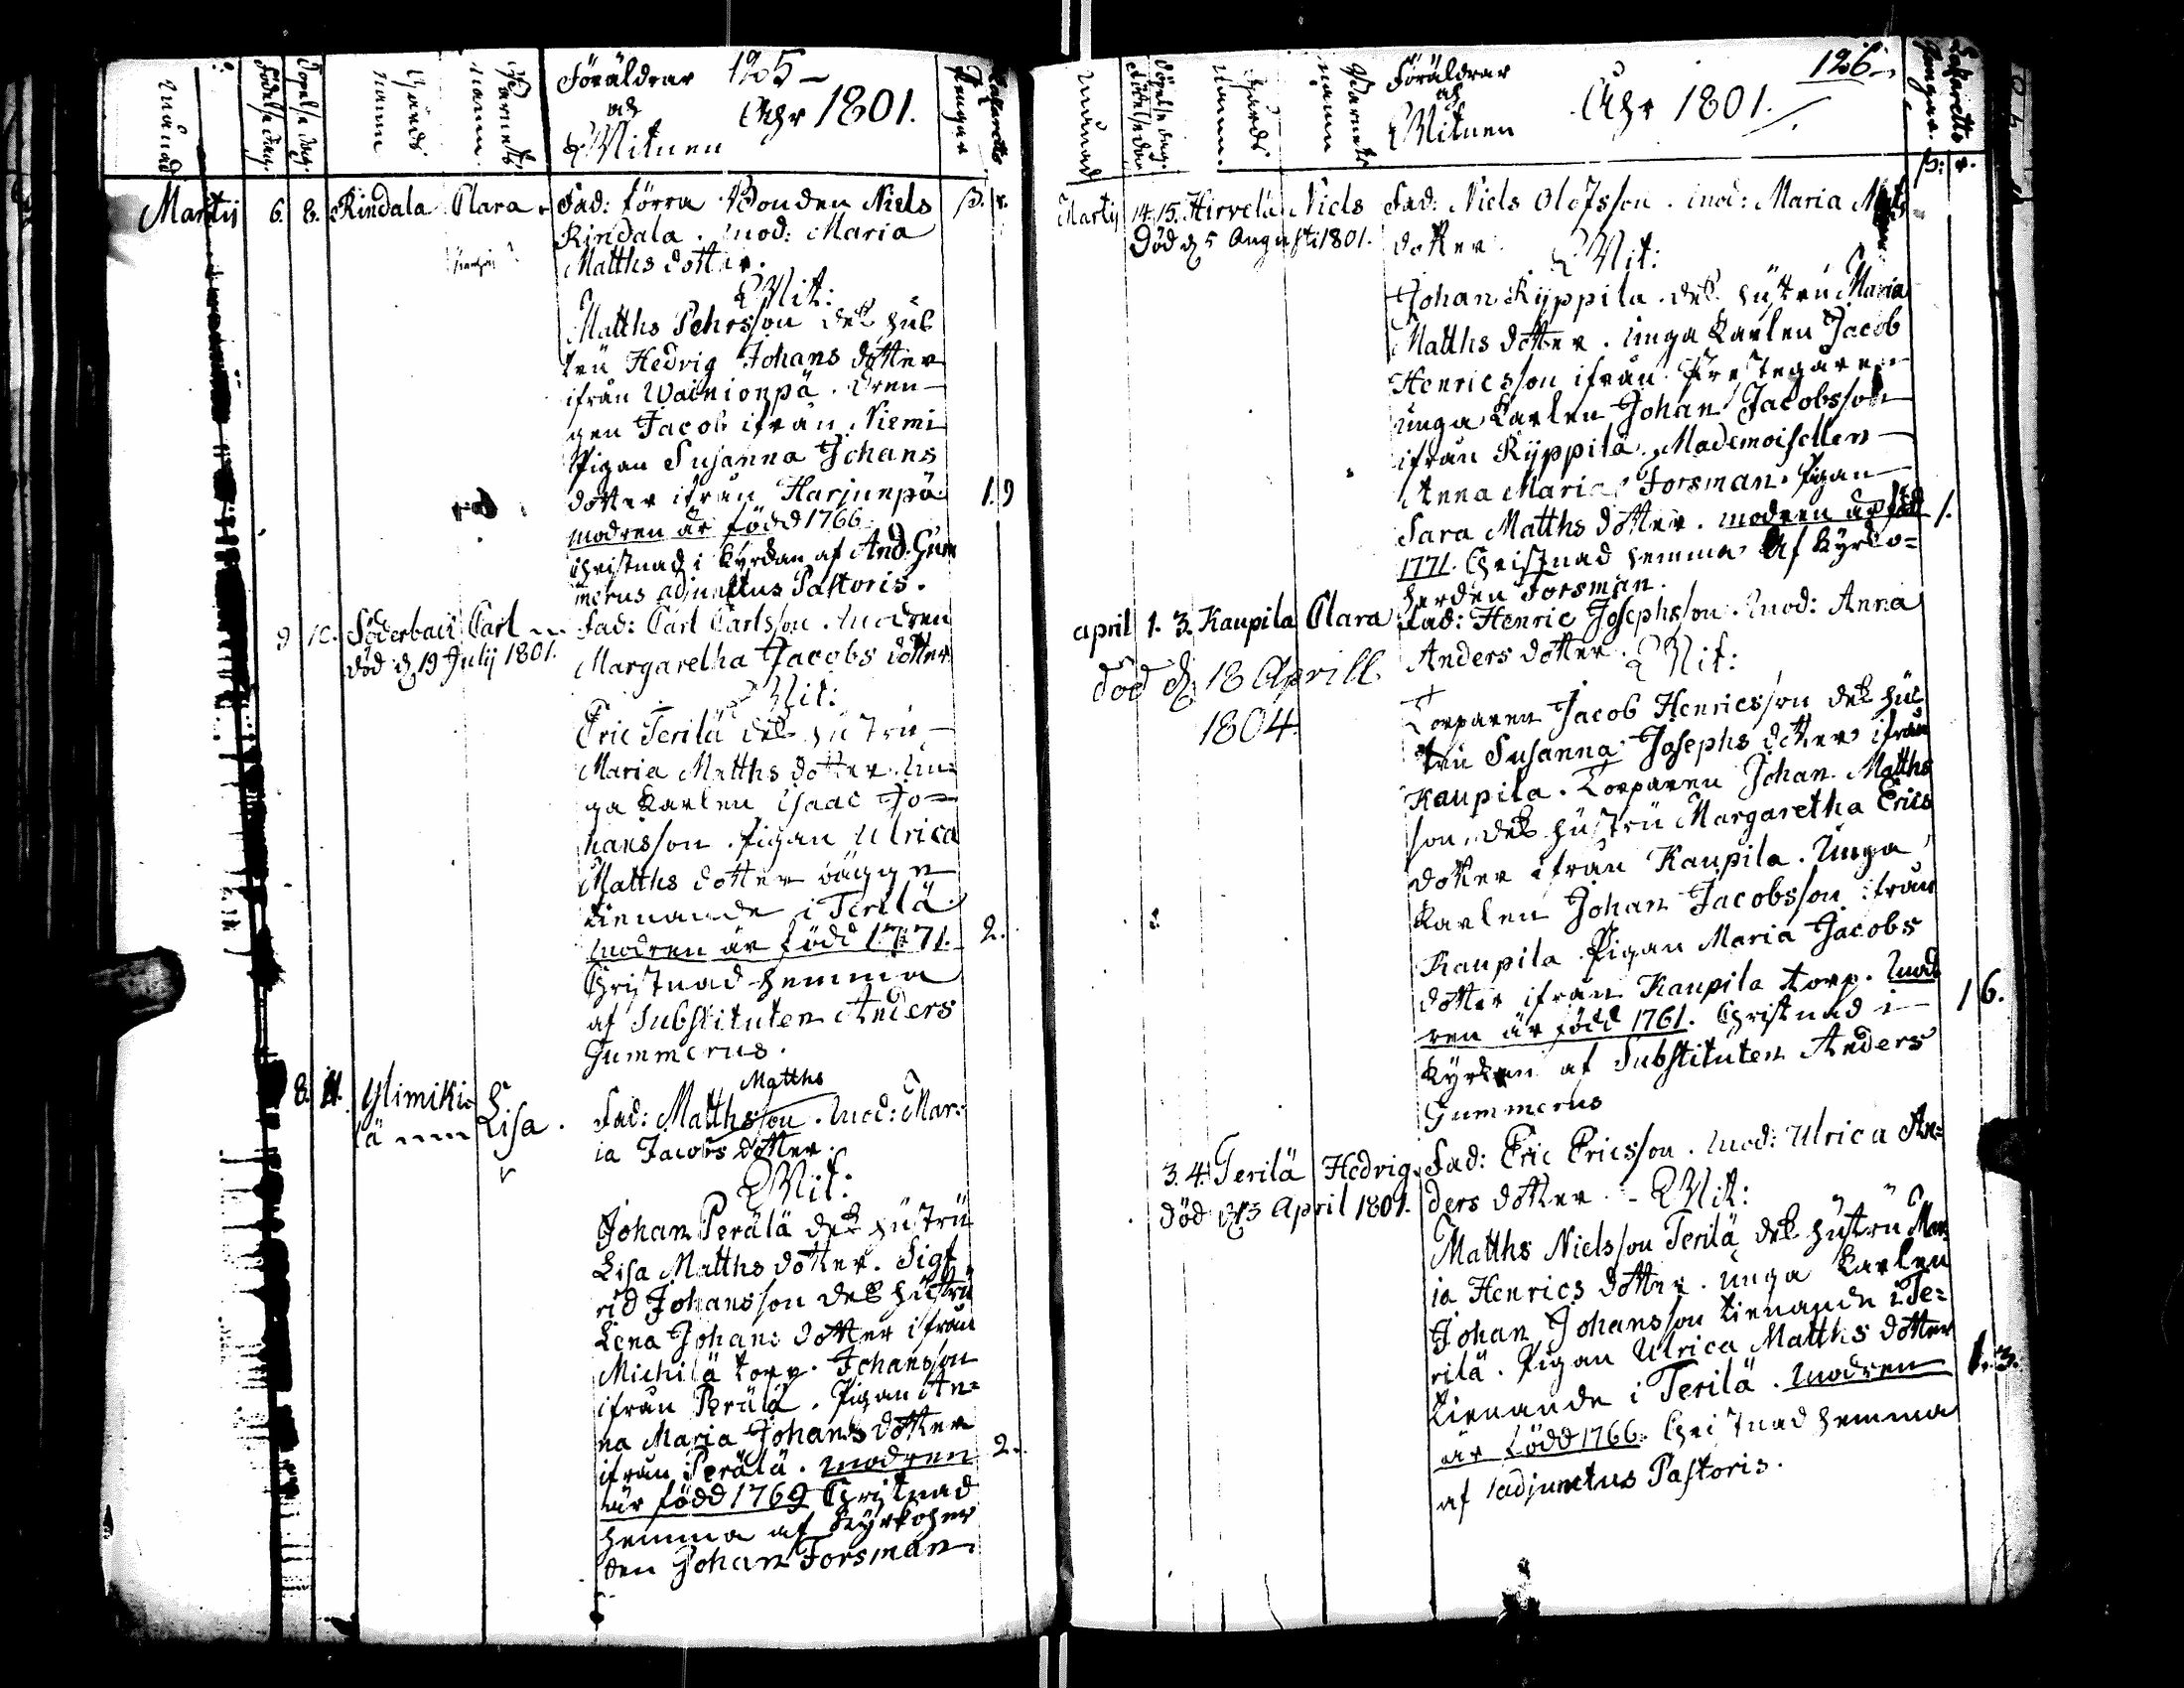 Månad
Födelse dag.
Döpelse dag.
Gårds namn
Barnets namn.
Föräldrar 125
och Åhr 1801.
Witnen
Lazaretts Pengar
ß. r.
Martij 6. 8. Rindala Clara Fad: förra Bonden Niels
Rindala. Mod: Maria
Matths dotter.
Wit:
Matths Pehrsson des hus
tru Hedvig Johans dotter
ifrån Wainionpä. Dren
gen Jacob ifrån Niemi
Pigan Susanna Johans
dotter ifrån Harjunpä 1. 9
modren är född 1766
Christnad i Kyrckan af And. Gum
merus adjunctus Pastoris.
9 10. Söderback Carl Fad: Carl Carlsson. Modren
död d. 19 Julij 1801. Margaretha Jacobs dotter
Wit:
Eric Terilä des hustru
Maria Matths dotter. Un-
ga Karlen Isaac Jo=
hansson. Pigan Ulrica
Matths dotter bägge
tienande i Terilä
modren är född 1771. 2.
Christnad hemma
af Substituten Anders
Gummerus.
8. 11. Ylimiki Lisa. Matths
lä Fad: Matthsson. Mod: Mar-
ia Jacobs dotter.
Wit:
Johan Perälä des hustru
Lisa Matths dotter. Sigf
rid Johansson des hustru
Lena Johans dotter ifrån
Michilä torp. Johansson
ifrån Perälä. Pigan An=
na Maria Johans dotter
ifrån Perälä. modren 2.
är född 1769 Christnad
hemma af Kyrkoher
den Johan Forsman
Månad
Födelse dag
Döpelse dag.
Gårds namn.
Barnets namn
Föräldrar 126
och Åhr 1801.
Witnen
Lazaretts Pengar.
ß: r.
Martij 14. 15. Hirvelä Niels Fad: Niels Olofsson. mod: Maria Matths
Död d 5 Augusti 1801. dotter.
Wit:
Johan Ryppilä. des hustru Maria
Matths dotter. unga Karlen Jacob
Henricsson ifrån Prestegåren
unga Karlen Johan Jacobsson
ifrån Ryppilä. Mademoisellen
Anna Maria Forsman. Pigan
Sara Matths dotter. modren är född 1.
1771. Christnad hemma af Kyrko=
herden Forsman.
april 1. 3. Kaupila Clara Fad: Henric Josephsson. Mod: Anna
död d. 18 Aprill Anders dotter. Wit:
1804. Torparen Jacob Henricsson des hus
tru Susanna Josephs dotter ifrån
Kaupila. Torparen Johan Matths
son, des hustru Margaretha Erics
dotter ifrån Kaupila. Unga
Karlen Johan Jacobsson ifrån
Kaupila. Pigan Maria Jacobs
dotter ifrån Kaupila torp. Mod
ren är född 1761. Christnad i 1 6.
Kyrkan af Substituten Anders
Gummerus
3. 4. Terilä Hedvig. Fad: Eric Ericsson. Mod: Ulrica An=
död d 13 April 1801. ders dotter. - Wit:
Matths Nielsson Terilä des hustru Mar
ia Henrics dotter. unga Karlen
Johan Johansson tienande i Te=
rilä. Pigan Ulrica Matths dotter
tienande i Terilä. modren 1. 3.
är född 1766. Christnad hemma
af adjunctus Pastoris.